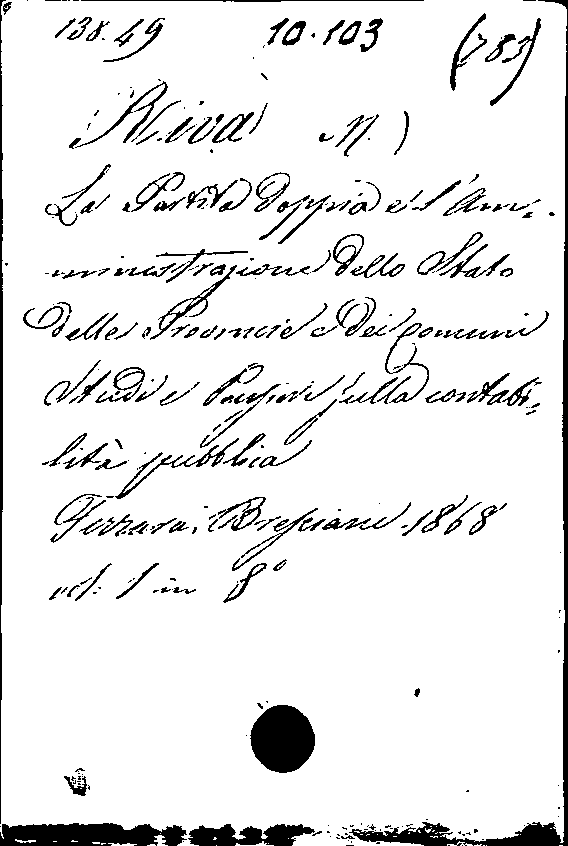 138.49 10.103 (783)
Riva M.)
La Partita doppia e l'Am-
ministrazione dello Stato
delle Provincie e dei Comuni
Studi e Pensieri sulla contabi-
lità pubblica
Ferrara, Bresciani 1868
vol. 1 in 8°